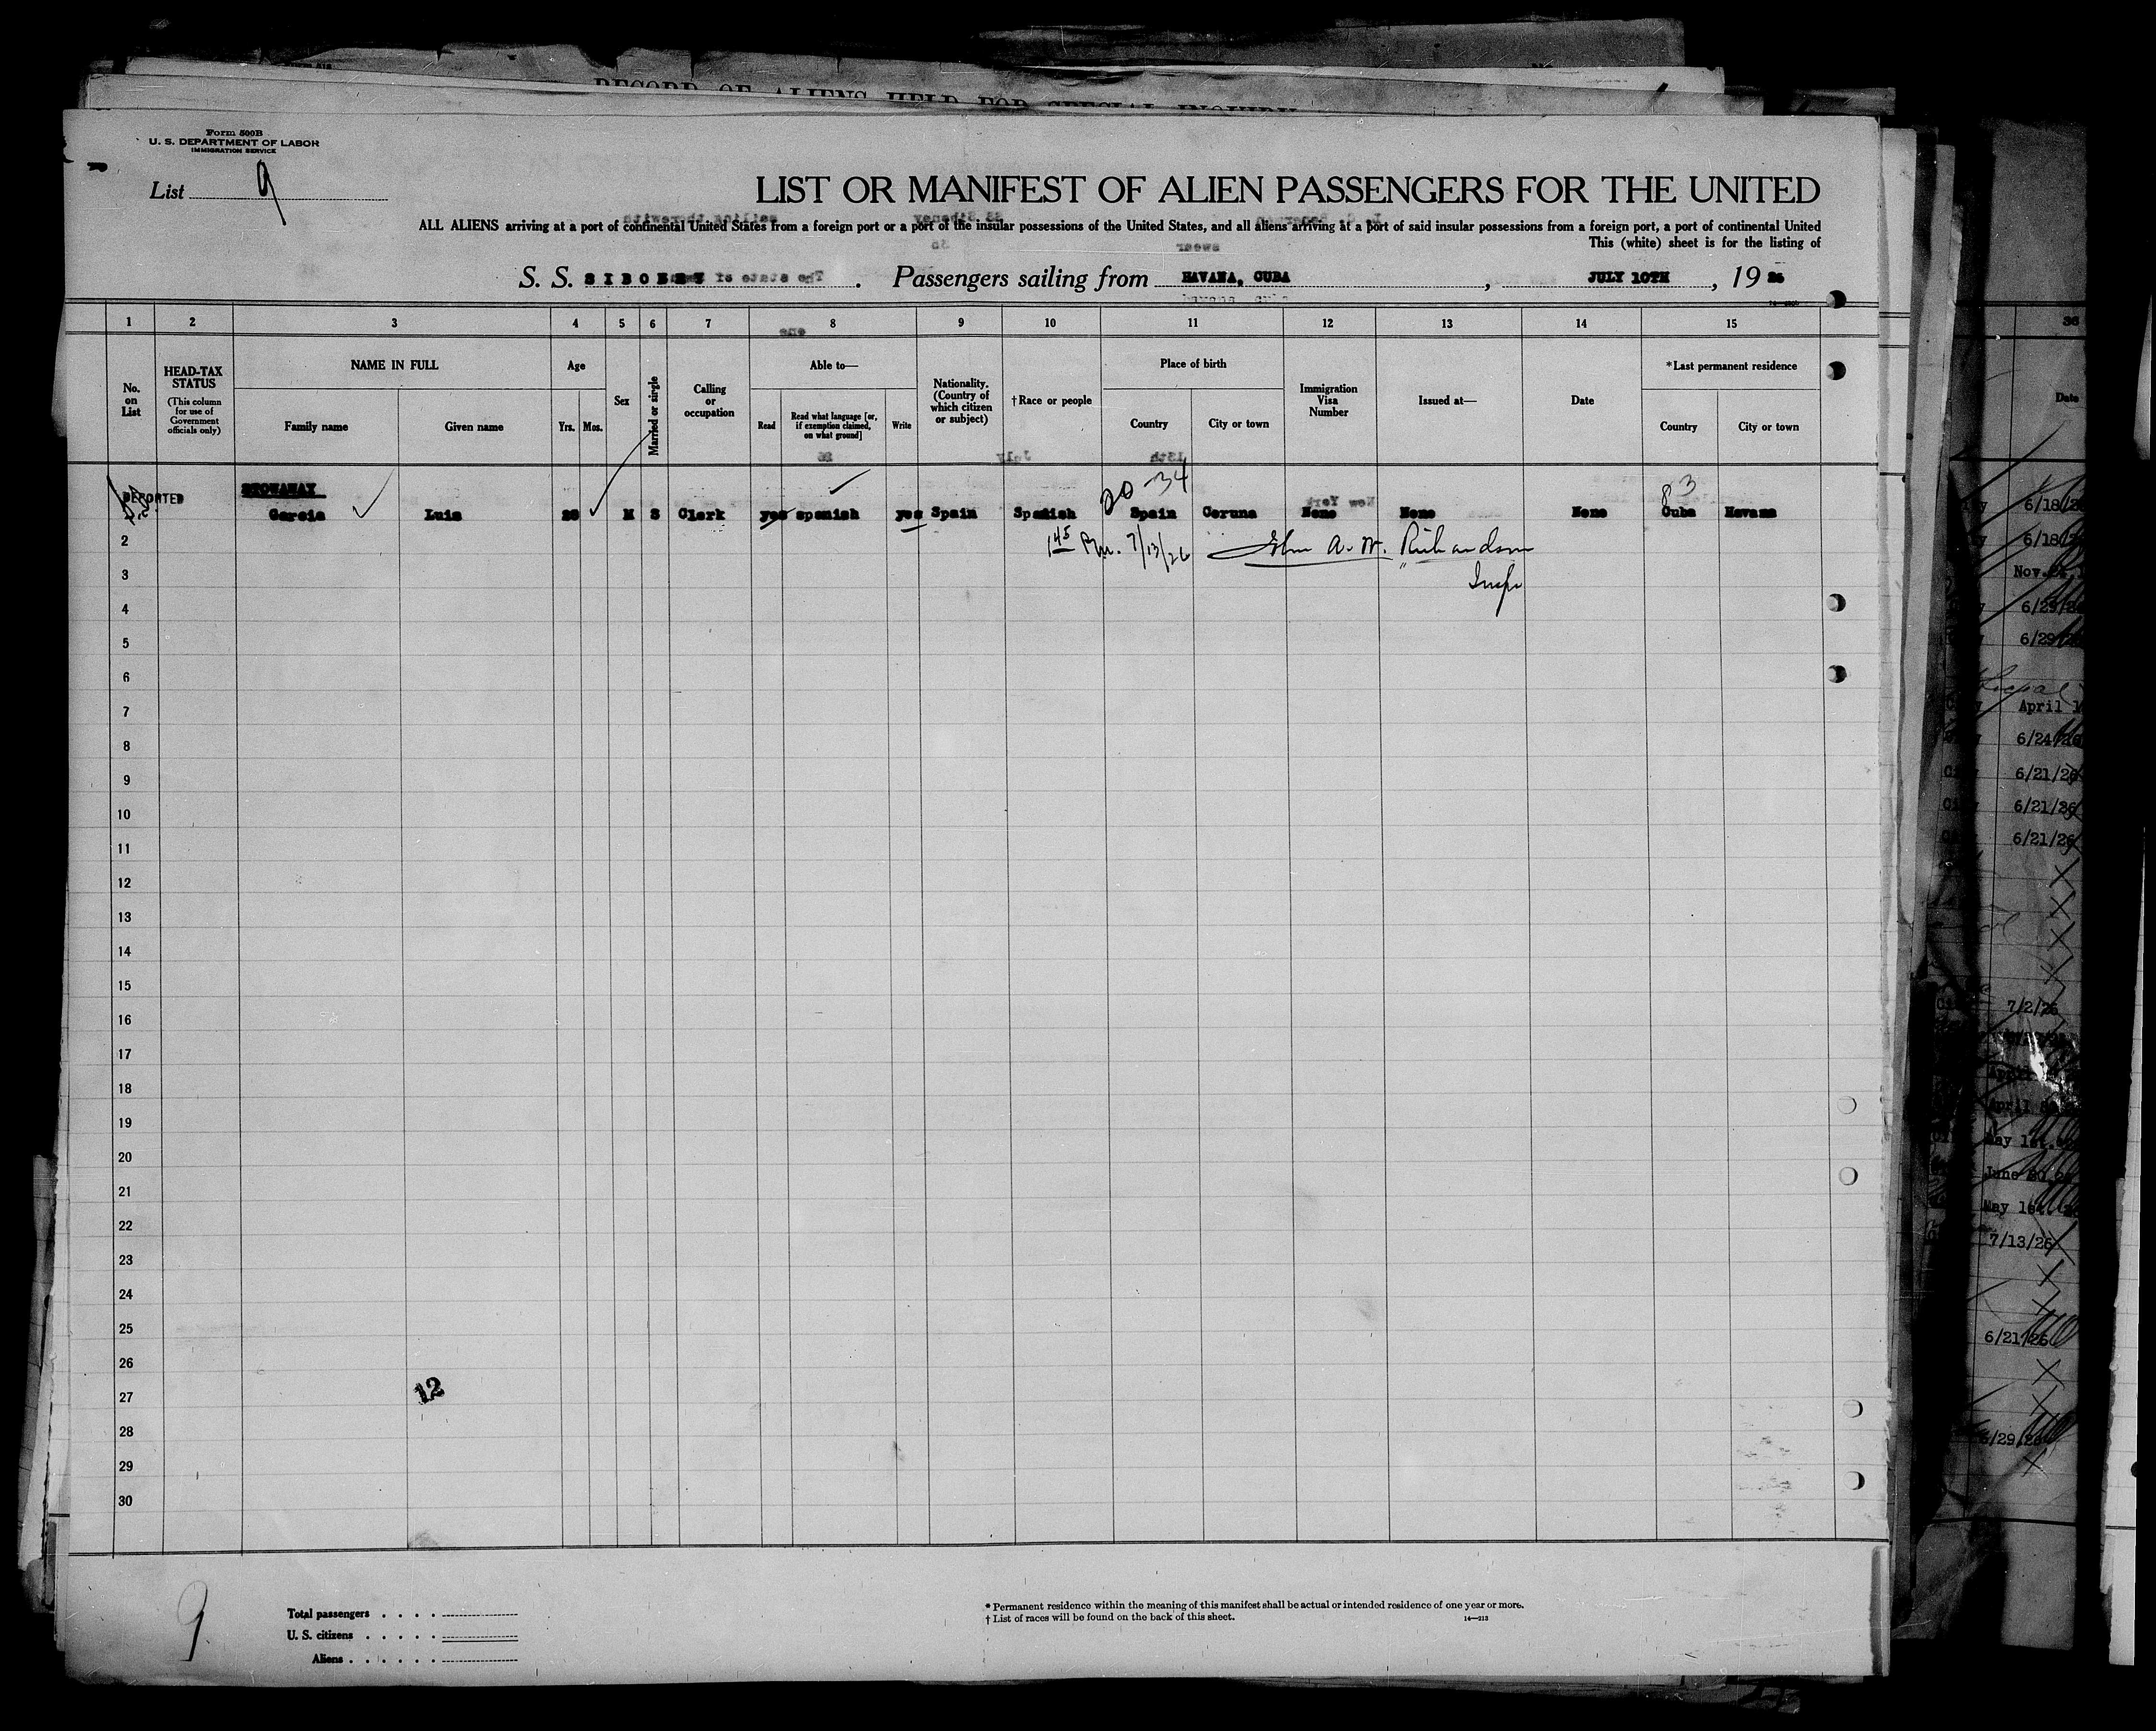 RECORD OF ALIENS HELD FOR SPECIAL INQUIRY
Form 500B
U. S. DEPARTMENT OF LABOR
IMMIGRATION SERVICE
List 9
LIST OR MANIFEST OF ALIEN PASSENGERS FOR THE UNITED
ALL ALIENS arriving at a port of continental United States from a foreign port or a port of the insular possessions of the United States, and all aliens arriving at a port of said insular possessions from a foreign port, a port of continental United
This (white) sheet is for the listing of
S. S. SIBONEY . Passengers sailing from HAVANA, CUBA , JULY 10TH , 19 26
1 2 3 4 5 6 7 8 9 10 11 12 13 14 15
No. on List
HEAD-TAX STATUS
(This column for use of Government officials only)
NAME IN FULL
Family name Given name
Age
Yrs. Mos.
Sex
Married or single
Calling or occupation
Able to—
Read
Read what language [or, if exemption claimed, on what ground]
Write
Nationality. (Country of which citizen or subject)
†Race or people
Place of birth
Country City or town
Immigration Visa Number
Issued at—
Date
*Last permanent residence
Country City or town
STOWAWAY
20-34
83
DEPORTED
Garcia Luis M S Clerk yes spanish yes Spain Spanish Spain Coruna None None None Cuba Havana
2
1 45 Pm. 7/13/26 John A. W. Richardson
3
Insp
4
5
6
7
8
9
10
11
12
13
14
15
16
17
18
19
20
21
22
23
24
25
26
27
12
28
29
30
9
Total passengers
U. S. citizens
Aliens
* Permanent residence within the meaning of this manifest shall be actual or intended residence of one year or more.
† List of races will be found on the back of this sheet.
14—213
36
Date
6/18/26
6/18/26
6/29/26
6/29/26
April 1
6/24/26
6/21/26
6/21/26
6/21/26
7/2/26
May 1st.
June 20
May 1st.
7/13/26
6/21/26
6/29/26